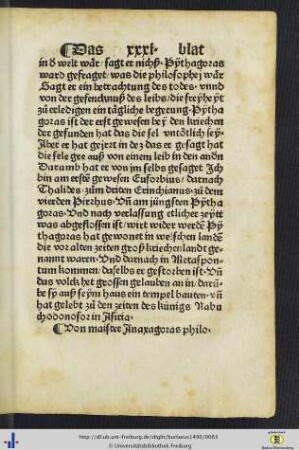 ¶Das xxxi. blat
in d welt wär / sagt er nichß. Pythagoras
ward gefraget / was die philosophej wär
Sagt er ein betrachtung des todes. vnnd
von der gefencknuß des leibs / die freyheyt
zů erledigen ein tägliche begerung. Pytha
goras ist der erst gewesen bey den kriechen
der gefunden hat das die sel vntötlich sey.
Aber er hat geirret in dez das er gesagt hat
die sele gee auß von einem leib in den andn
Darumb hat er von jm selbs gesaget Ich
bin am erste gewesen Euforbius / darnach
Thalides. zům dritten Erinchianus. zů dem
vierden Pirrhus. Vn̄ am jüngsten Pytha
goras. Vnd nach verlassung etlicher zeytt
was abgeflossen ist / wirt wider werdē Py
thagoras hat gewonet in welschen landē
die vor alten zeiten groß kriechenlandt ge
nannt waren. Vnd darnach in Metaspon
tum kommen / daselbs er gestorben ist. Vn̄
das volck het grossen gelauben an in / darū
be sy auß seym haus ein tempel bauten / vn̄
hat gelebt zů den zeiten des künigs Nabu
chodonosor in Assiria.
¶Von maister Anaxagoras philo.
http://dl.ub.uni-freiburg.de/diglit/burlaeus1490/0083
© Universitätsbibliothek Freiburg